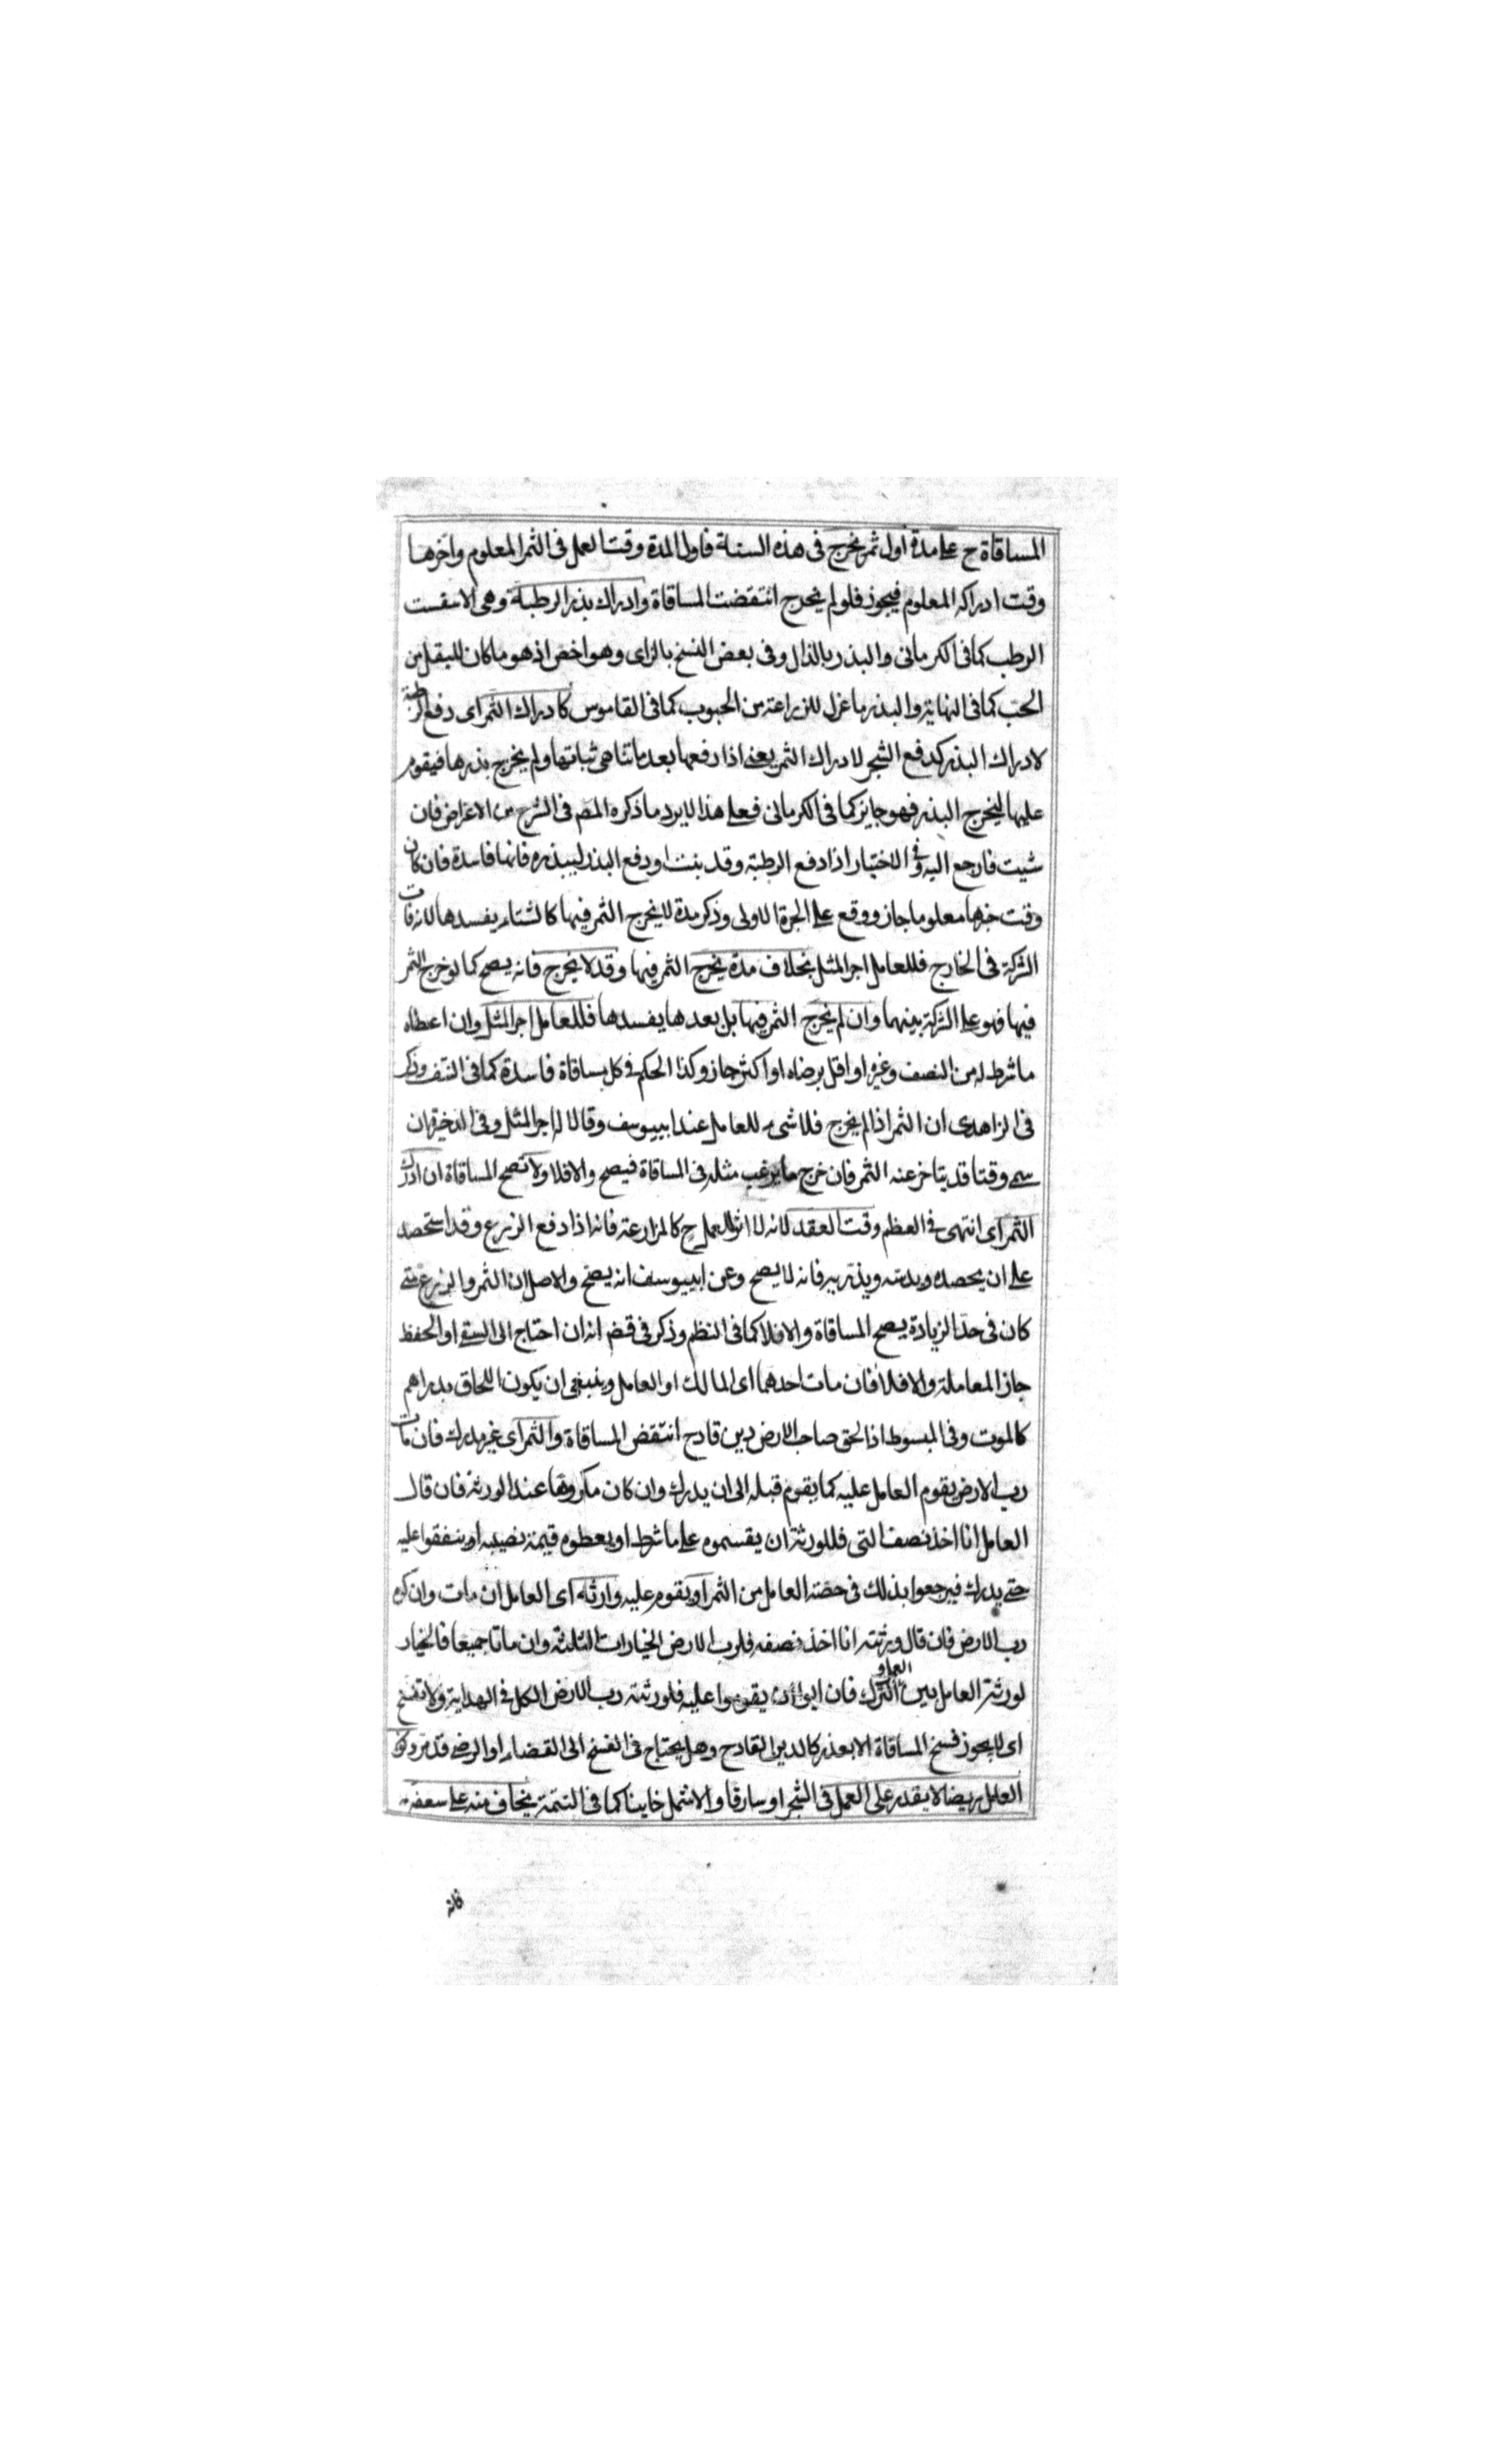 المساقاة ح على مدة اول ثمر يخرج فى هذه السنة فاول المدة وقت العمل فى الثمر المعلوم واخرها
وقت ادراكه المعلوم فيجوز فلو لم يخرج انتقضت المساقاة وادراك بذر الرطبة وهى الاسفست
الرطب كما فى الكرمانى والبذر بالذال وفى بعض النسخ بالزاى وهو اخص اذ هو ما كان للبقل من
الحب كما فى النهاية والبذر ما عزل للزراعة من الحبوب كما فى القاموس كادراك الثمر اى دفع الرطبة
لادراك البذر كدفع الشجر لادراك الثمر يعنى اذا دفعها بعد ما تناهى نباتها ولم يخرج بذرها فيقوم
عليها ليخرج البذر فهو جايز كما فى الكرمانى فعلى هذا لا يرد ما ذكره المص فى الشرح من الاعراض فان
شيت فارجع اليه وفى الاختيار اذا دفع الرطبة وقد بنت او دفع البذر ليبذره فانها فاسدة فان كان
وقت جزها معلوما جاز ووقع على الجزة الاولى وذكر مدة لا يخرج الثمر فيها كالشتاء يفسدها لانه فات
الشركة فى الخارج فللعامل اجر المثل بخلاف مدة يخرج الثمر فيها وقد لا يخرج فانه يصح كما لو خرج الثمر
فيها فهو على الشركة بينهما وان لم يخرج الثمر فيها بل بعدها يفسدها فللعامل اجر المثل وان اعطاه
ما شرط له من النصف وغيره او اقل برضاه او اكثر جاز وكذا الحكم فى كل مساقاة فاسدة كما فى النتف وذكر
فى الزاهدى ان الثمر اذا لم يخرج فلا شىء للعامل عند ابيوسف وقالا له اجر المثل وفى الذخيرة ان
سمى وقتا قد يتاخر عنه الثمر فان خرج ما يرغب مثله فى المساقاة فيصح والا فلا ولا تصح المساقاة ان ادرك
الثمر اى انتهى فى العظم وقت العقد لانه لا اثر للعمل ح كالمزارعة فانه اذا دفع الزرع وقد استحصد
على ان يحصده ويدسه ويذريه فانه لا يصح وعن ابيوسف انه يصح والاصل ان الثمر والزرع متى
كان فى حد الزيادة يصح المساقاة والا فلا كما فى النظم وذكر فى قضـ انه ان احتاج الى السقى او الحفظ
جاز المعاملة والا فلا فان مات احدهما اى المالك او العامل وينبغى ان يكون اللحاق بدراهم
كالموت وفى المبسوط اذا لحق صاحب الارض دين قادح انتقض المساقاة والثمر اى غير مدرك فان مات
رب الارض يقوم العامل عليه كما يقوم قبله الى ان يدرك وان كان مكروها عند الورثة فان قال
العامل انا اخذ نصف التى فللورثة ان يقسموه على ما شرط او يعطوه قيمة نصيبه او ينفقوا عليه
حتى يدرك فيرجعوا بذلك فى حصة العامل من الثمر او يقوم عليه وارثه اى العامل ان مات وان كره
رب الارض فان قال ورثته انا اخذ نصفه فلرب الارض الخيارات الثلثة وان ماتا جميعا فالخيار
لورثة العامل بين العمل و الترك فان ابوا ان يقوموا عليه فلورثة رب الارض الكل فى الهداية ولا تفسخ
اى لا يجوز فسخ المساقاة الا بعذر كالدين القادح وهل يحتاج فى الفسخ الى القضاء او الرضى قد مر وكون
العامل مريضا لا يقدر على العمل فى الشجر او سارقا والاشمل خاينا كما فى التتمة يخاف منه على سعفه
فانه